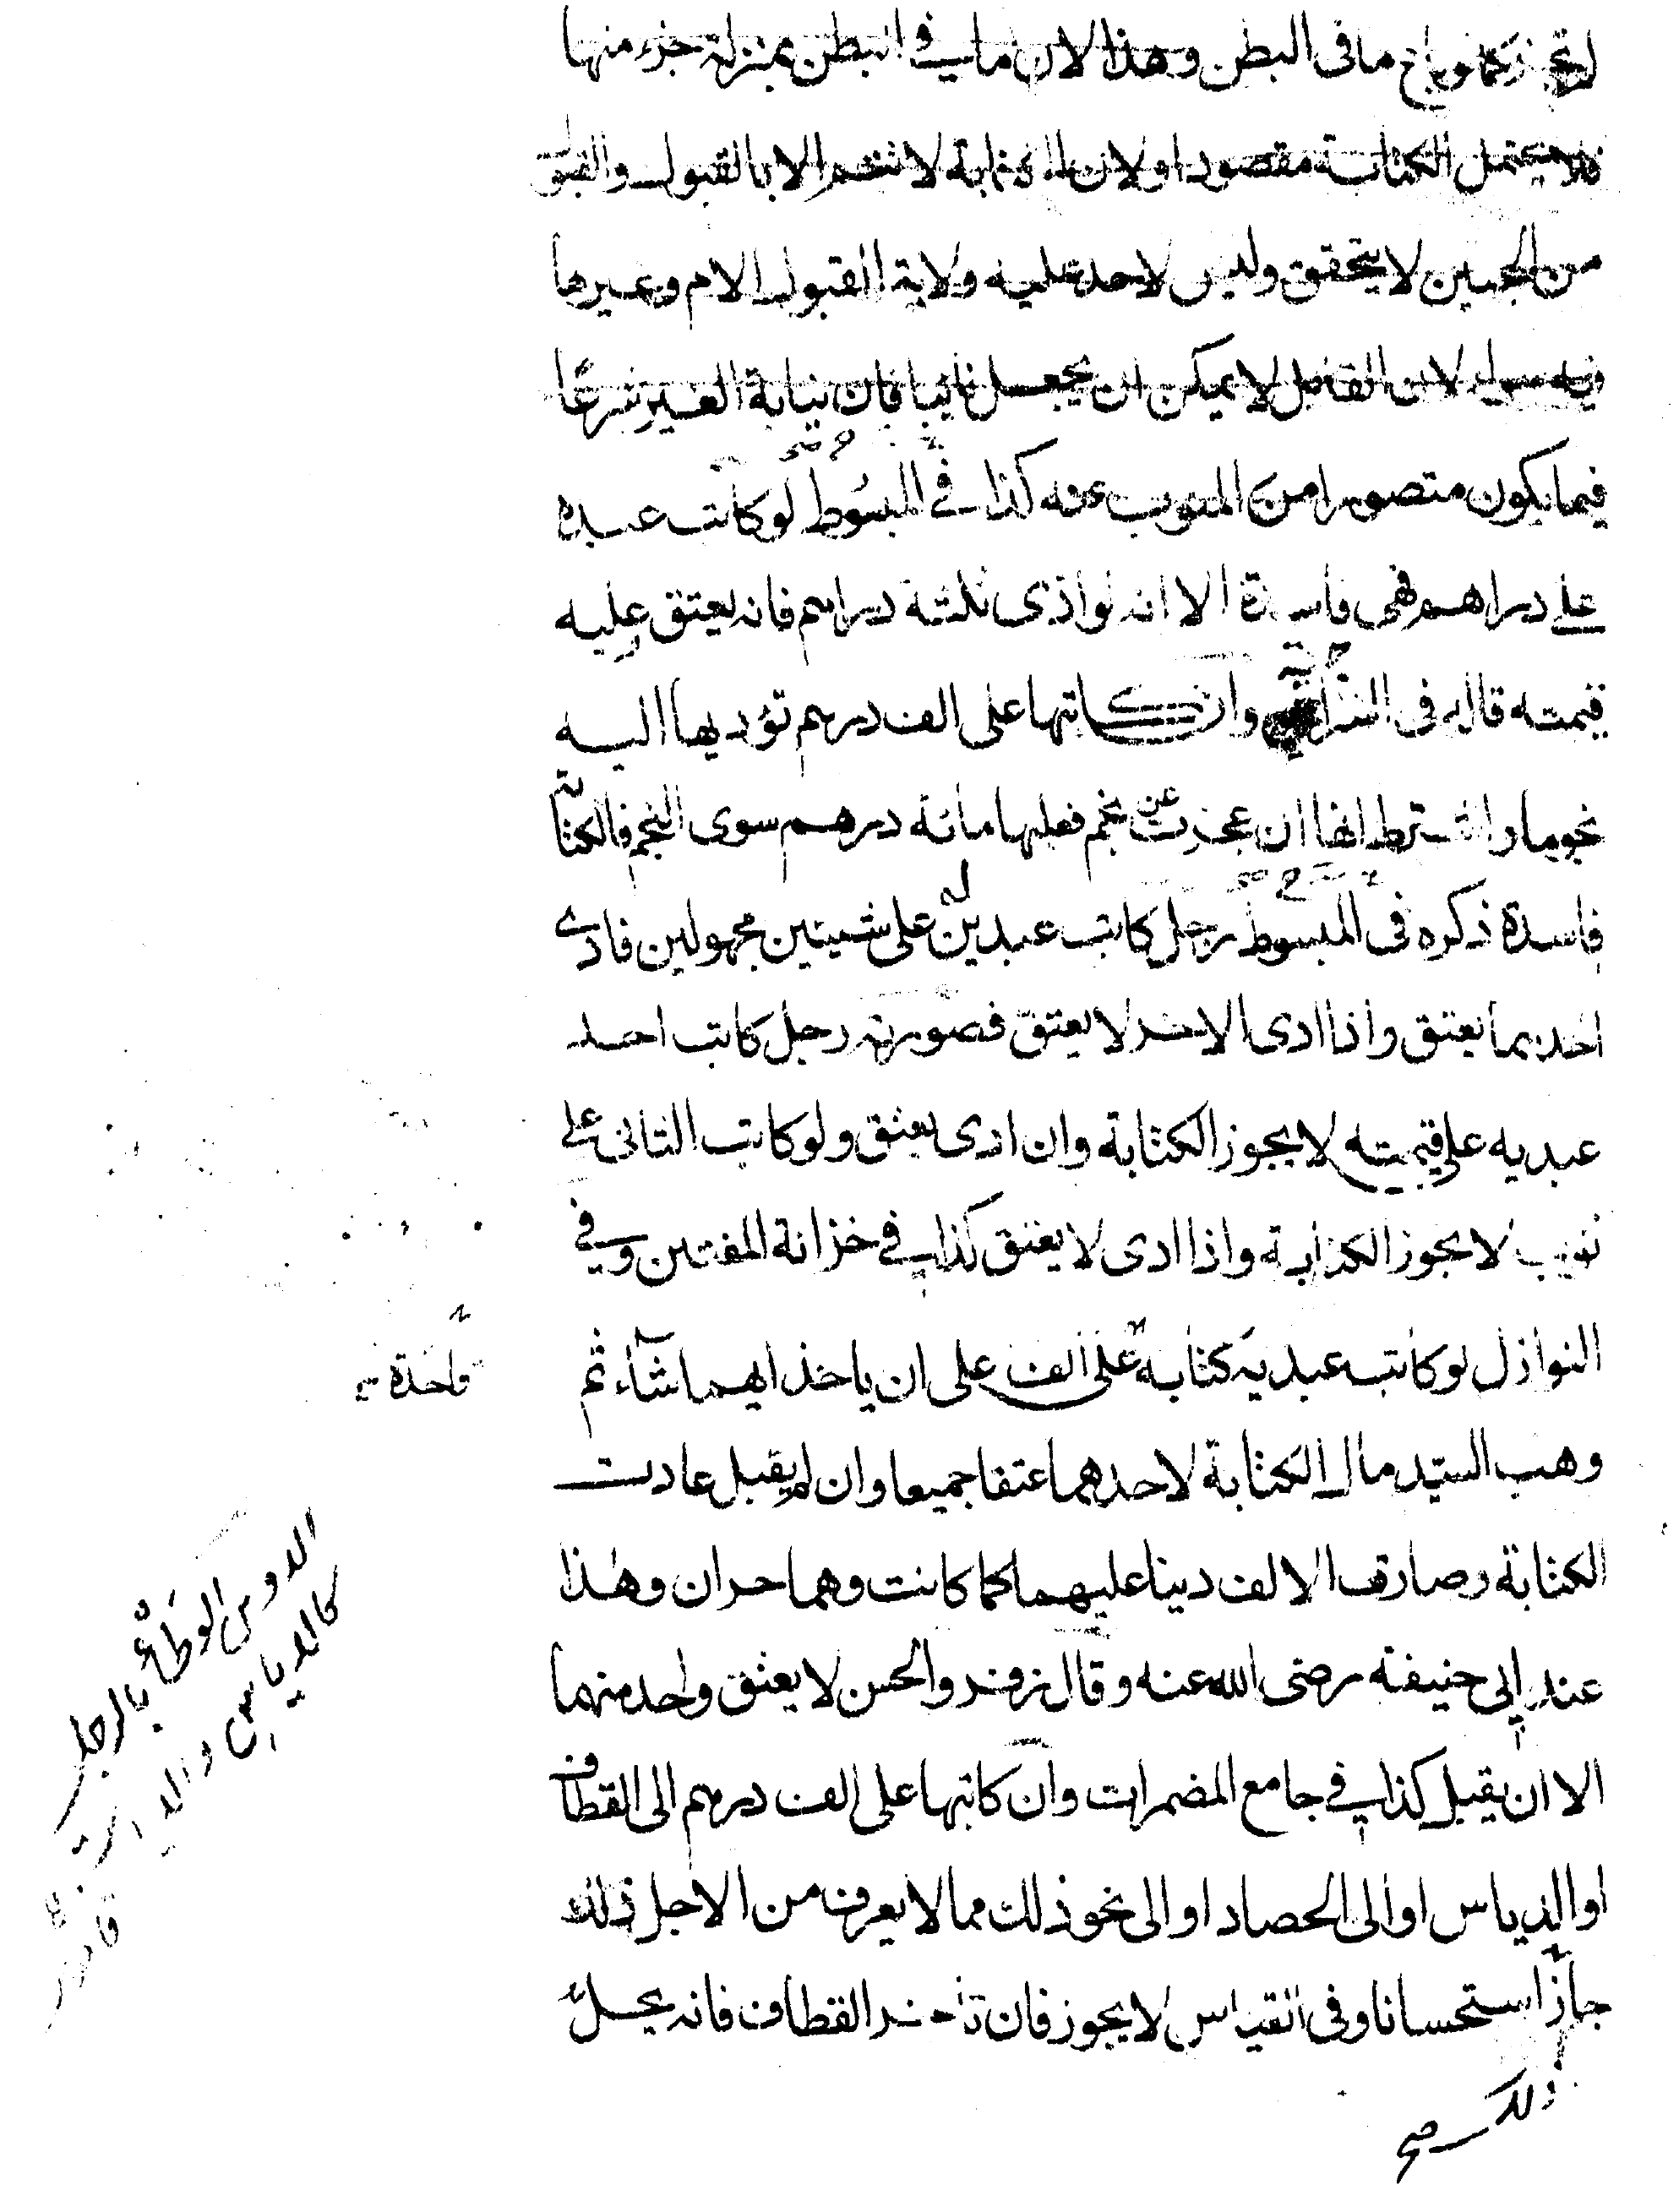 لم تجز كما لو باع ما فى البطن وهذا لان ما فى البطن بمنزلة جزء منها
فلا يحتمل الكتابة مقصودا ولان الكتابة لا تتم الا بالقبول والقبول
من الجنين لا يتحقق وليس لاحد عليه ولاية القبول الام وغيرها
فيه سواء لان القابل لا يمكن ان يجعل نائبا فان نيابة الغير شرعًا
فيما يكون متصورا من المنوب عنه كذا فى المبسوط لو كاتب عبده
على دراهم فهى فاسدة الا انه لو ادى ثلثة دراهم فانه يعتق عليه
قيمته قاله فى وان كاتبها على الف درهم تؤديها اليه
نجوما واشترط انها ان عجزت عن نجم فعليها مائة درهم سوى النجم فالكتابة
فاسدة ذكره فى المبسوط رجل كاتب عبدين له على شيئين مجهولين فادى
احدهما يعتق واذا ادى الاخر لا يعتق فصورته رجل كاتب احد
عبديه على قيمته لا يجوز الكتابة وان ادى يعتق ولو كاتب الثانى على
ثوب لا يجوز الكتابة واذا ادى لا يعتق كذا فى خزانة المفتين وفى
النوازل لو كاتب عبديه كتابة على الف على ان ياخذ ايهما شاء ثم
واحدة صح
وهب السيد مال الكتابة لاحدهما عتقا جميعا وان لم يقبل عادت
الكتابة وصارت الالف دينا عليهما كما كانت وهما حران وهذا
عند ابى حنيفة رضى الله عنه وقال زفر والحسن لا يعتق واحد منهما
الا ان يقبل كذا فى جامع المضمرات وان كاتبها على الف درهم الى القطاف
او الدياس او الى الحصاد او الى نحو ذلك مما لا يعرف من الاجل
جاز استحسانا وفى القياس لا يجوز فان تأخر القطاف فانه يحل
ذلك صح
الدوس الوطأ بالرجل
كالدياس